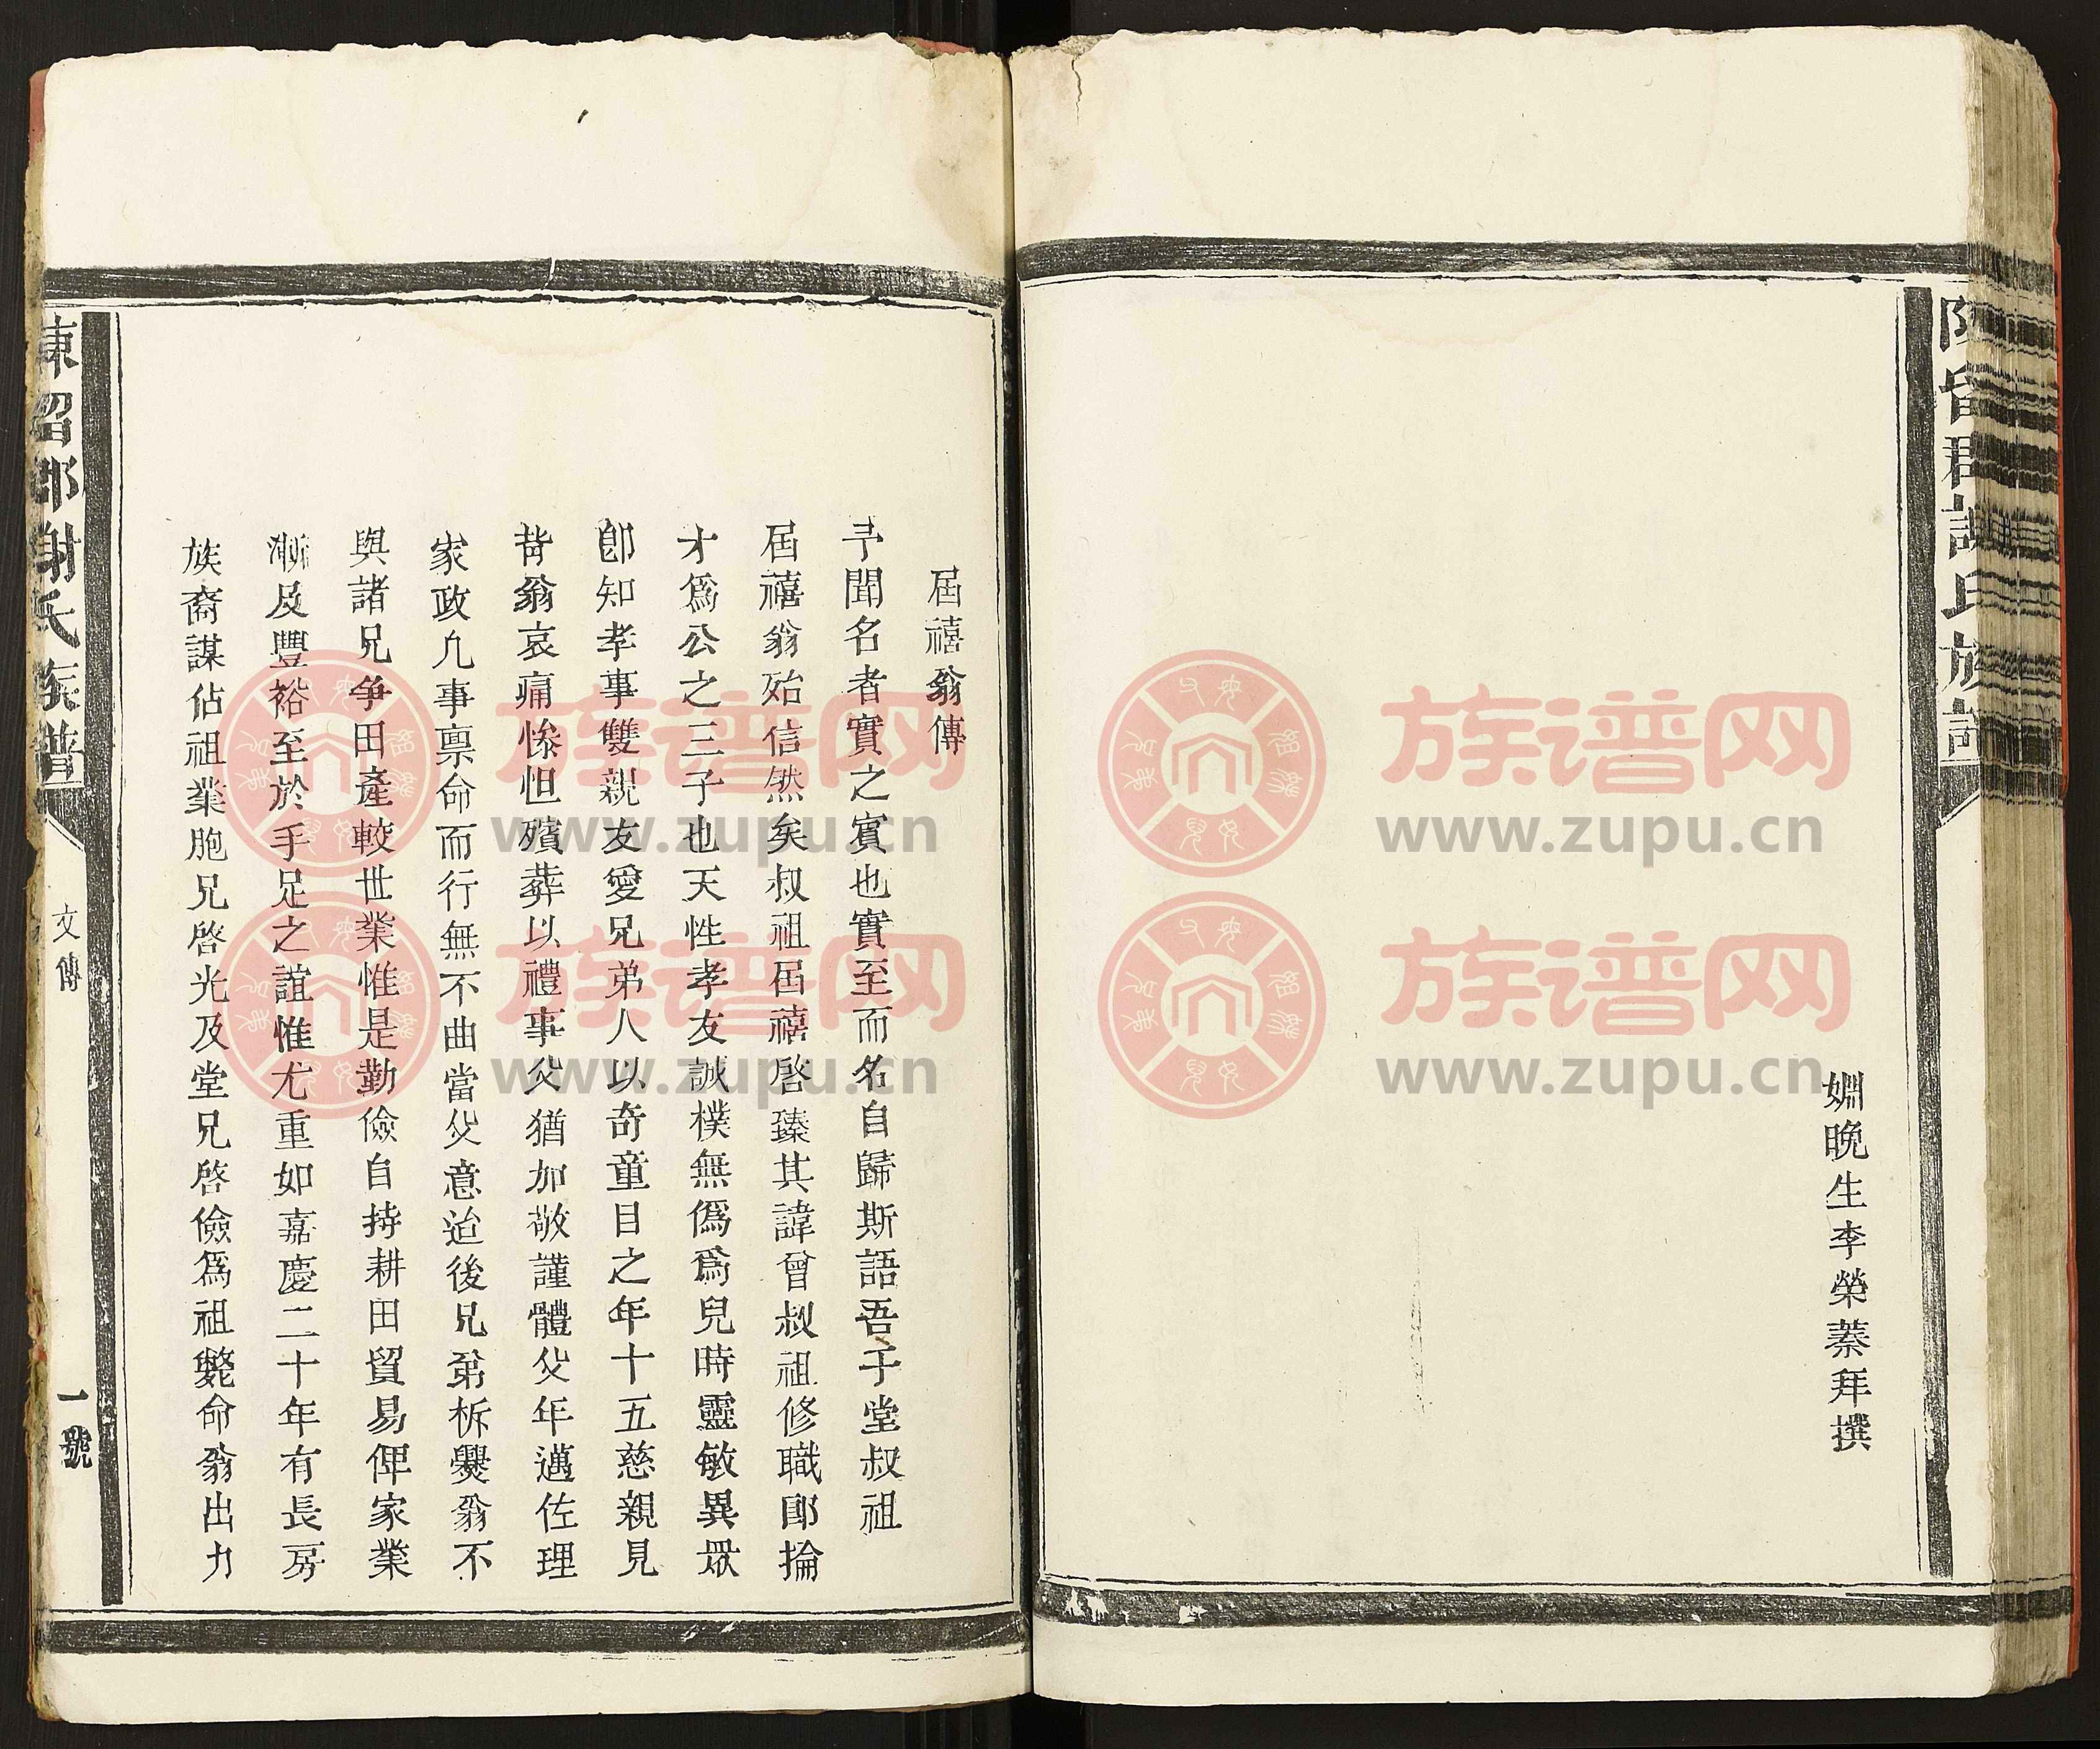 陳留郡謝氏族譜
姻晚生李榮蓁拜撰
屆禧翁傳
予聞名者實之賓也實至而名自歸斯語吾于堂叔祖
屆禧翁始信然矣叔祖屆禧啓臻其諱曾叔祖修職郎掄
才爲公之三子也天性孝友誠樸無僞爲兒時靈敏異眾
卽知孝事雙親友愛兄弟人以奇童目之年十五慈親見
背翁哀痛慘怛殯葬以禮事父猶加敬謹體父年邁佐理
家政凢事禀命而行無不曲當父意迨後兄弟析爨翁不
與諸兄爭田產較世業惟是勤儉自持耕田貿易俾家業
漸及豐裕至於手足之誼惟尤重如嘉慶二十年有長房
族裔謀佔祖業胞兄啓光及堂兄啓儉爲祖斃命翁出力
陳留郡謝氏族譜
文傳
一號
族谱网
www.zupu.cn
族谱网
www.zupu.cn
族谱网
www.zupu.cn
族谱网
www.zupu.cn